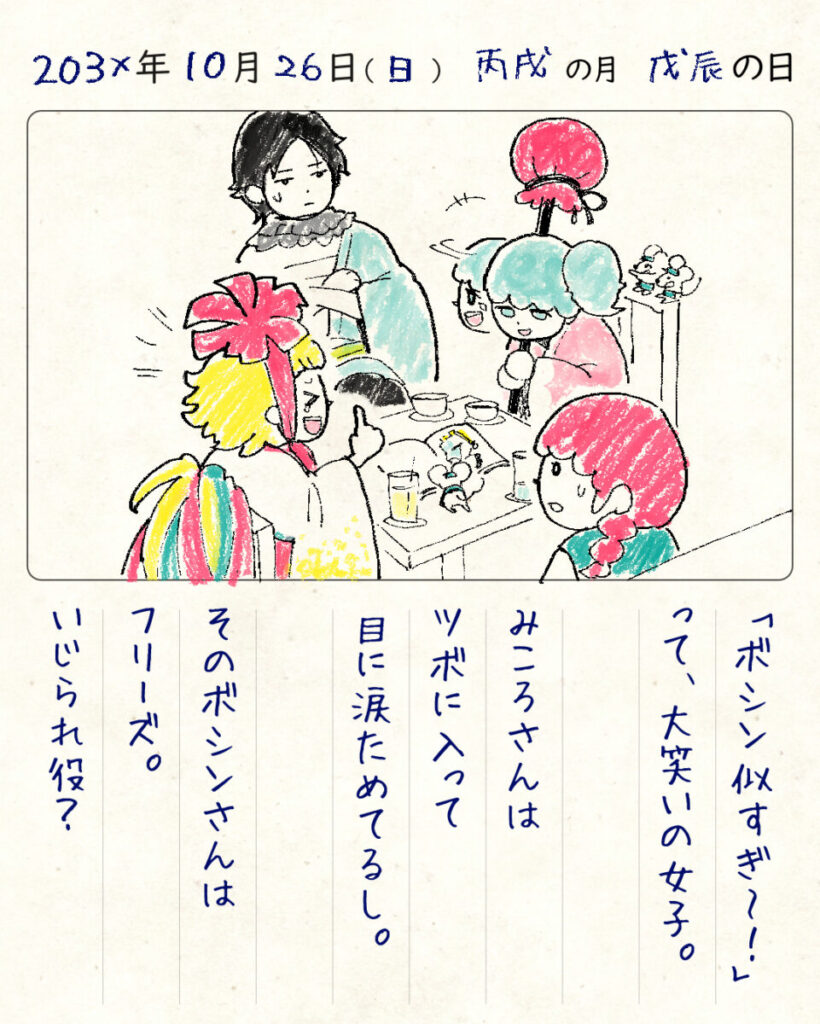 203×年10月26日(日) 丙戌の月 戊辰の日
「ボシン似すぎ〜!」
って、大笑いの女子。
みころさんは
ツボに入って
目に涙ためてるし。
そのボシンさんは
フリーズ。
いじられ役?